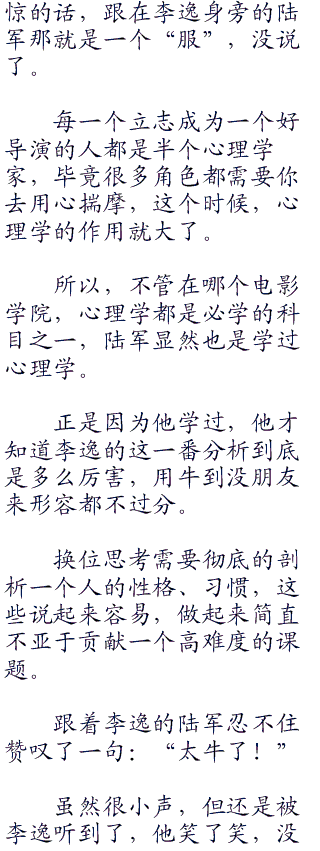 惊的话，跟在李逸身旁的陆
军那就是一个“服”，没说
了。
每一个立志成为一个好
导演的人都是半个心理学
家，毕竟很多角色都需要你
去用心揣摩，这个时候，心
理学的作用就大了。
所以，不管在哪个电影
学院，心理学都是必学的科
目之一，陆军显然也是学过
心理学。
正是因为他学过，他才
知道李逸的这一番分析到底
是多么厉害，用牛到没朋友
来形容都不过分。
换位思考需要彻底的剖
析一个人的性格、习惯，这
些说起来容易，做起来简直
不亚于贡献一个高难度的课
题。
跟着李逸的陆军忍不住
赞叹了一句：“太牛了！”
虽然很小声，但还是被
李逸听到了，他笑了笑，没